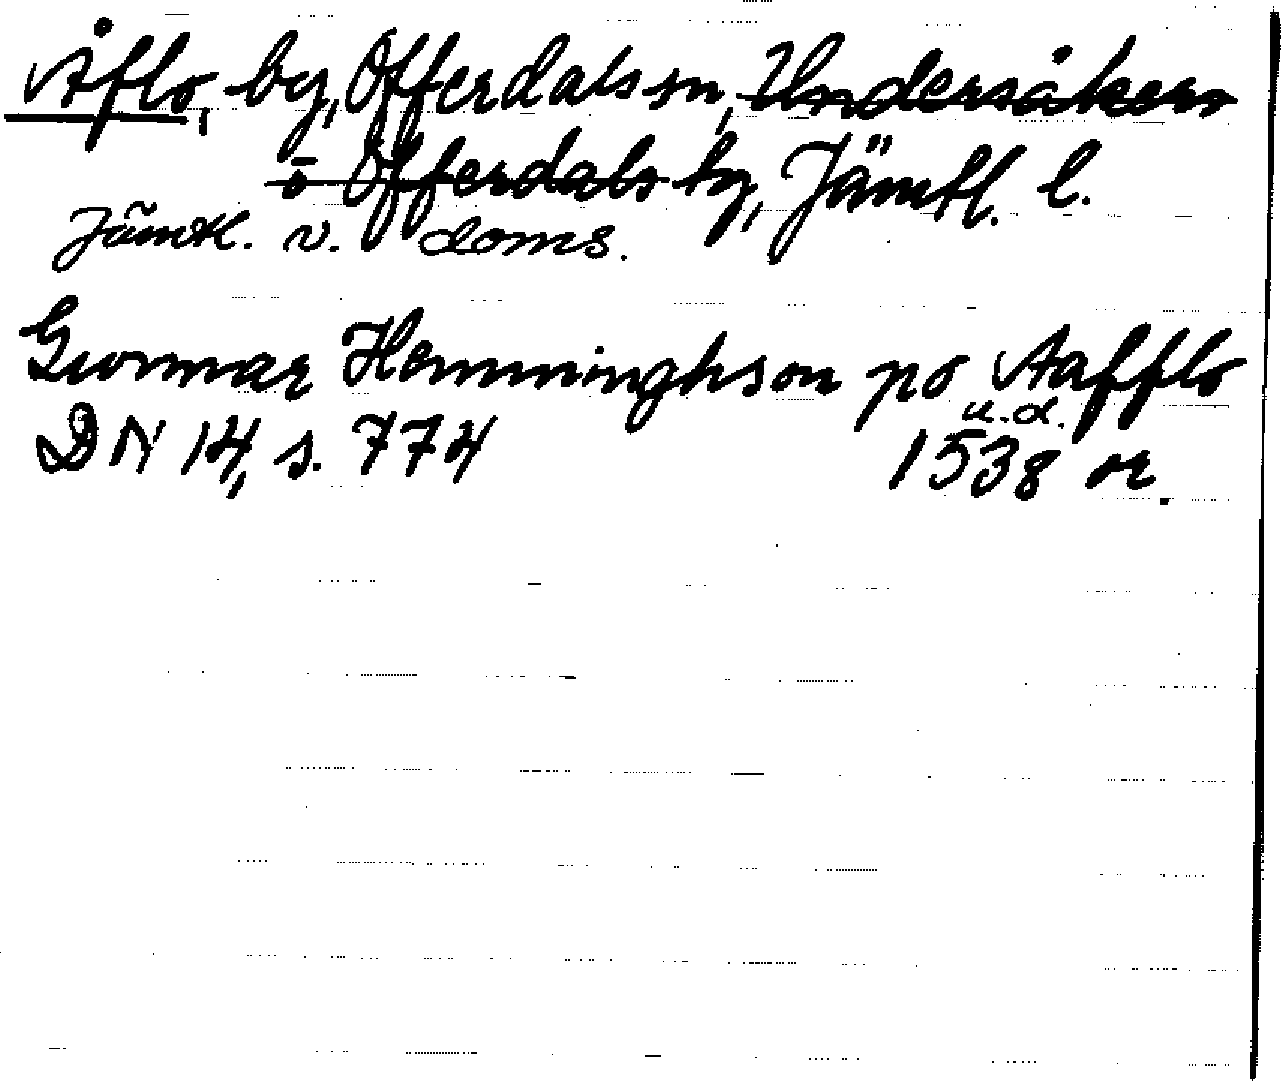 Åflo, by, Offerdals sn, Undersåkers
o Offerdals tg, Jämtl. l.
Jämtl. v. doms.
Gunnar Hemminghson po Aafflo
u.d.
DN 14, s. 774 1538 or.